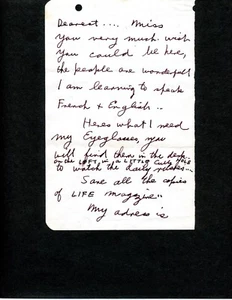 Dearest.... Miss
you very much. wish
you could be here,
the people are wonderful
I am learning to speak
French & English..
Heres what I need
my Eyeglasses, you
will find them in the desk
on the LEFT, in a LITTLE
to watch the daily
Save all the copies
of LIFE magazine..
My adress is